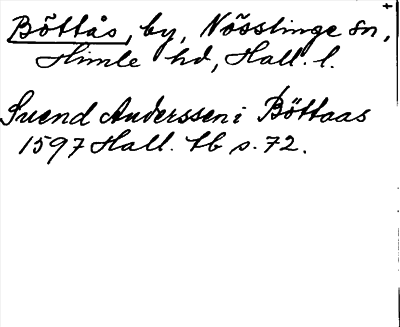 Böttås, by, Nösslinge sn,
Himle hd, Hall. l.
Suend Anderssen i Böttaas
1597 Hall. tb s. 72.